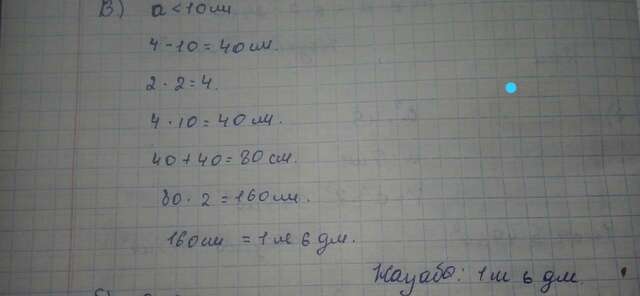 В) a < 10 см
4 - 10 = 40 см.
2 · 2 = 4.
4 · 10 = 40 см.
40 + 40 = 80 см.
80 · 2 = 160 см.
160 см = 1 м 6 дм.
Жауабы: 1 м 6 дм